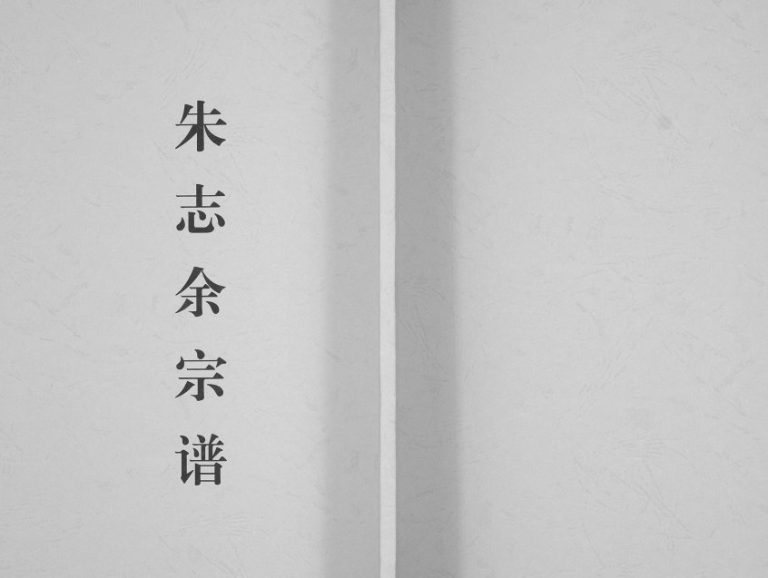 朱志余宗谱